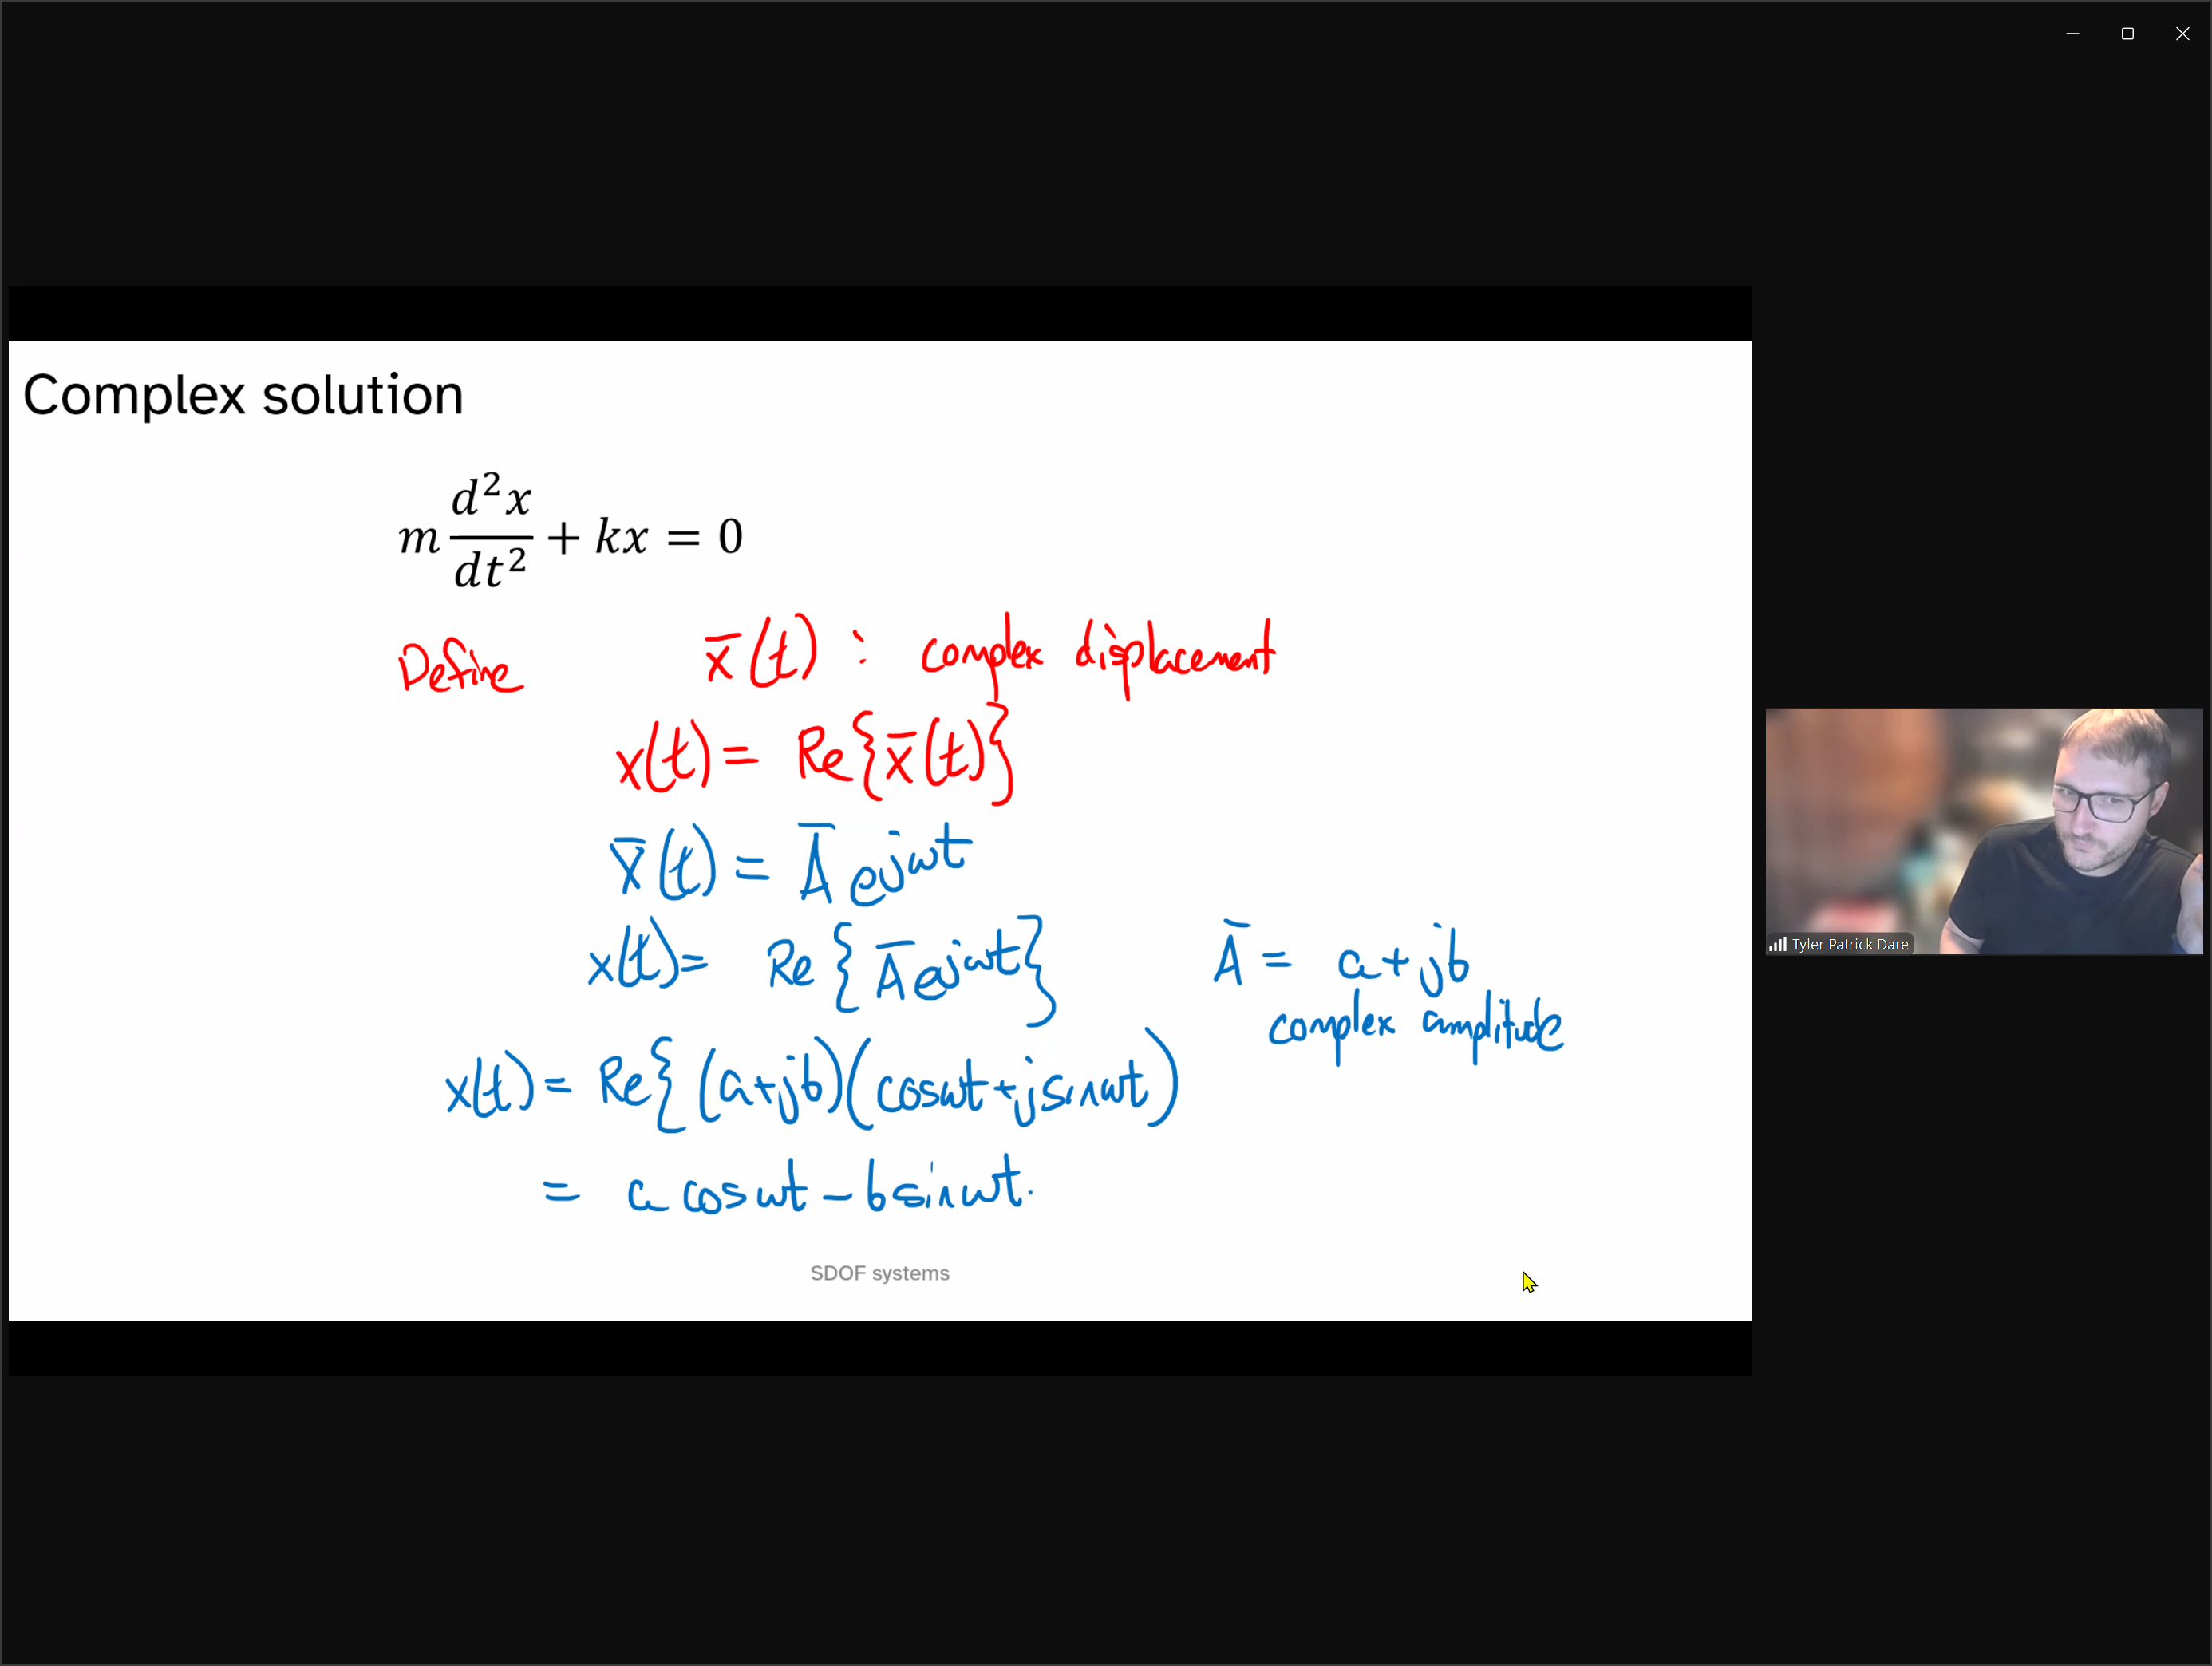 Complex solution
m d²x/dt² + kx = 0
Define x̄(t) : complex displacement
x(t) = Re{x̄(t)}
x̄(t) = Ā e^jωt
x(t) = Re{Ā e^jωt} Ā = a + jb
complex amplitude
x(t) = Re{(a+jb)(cosωt+jsinωt)
= a cosωt − b sinωt.
SDOF systems
Tyler Patrick Dare